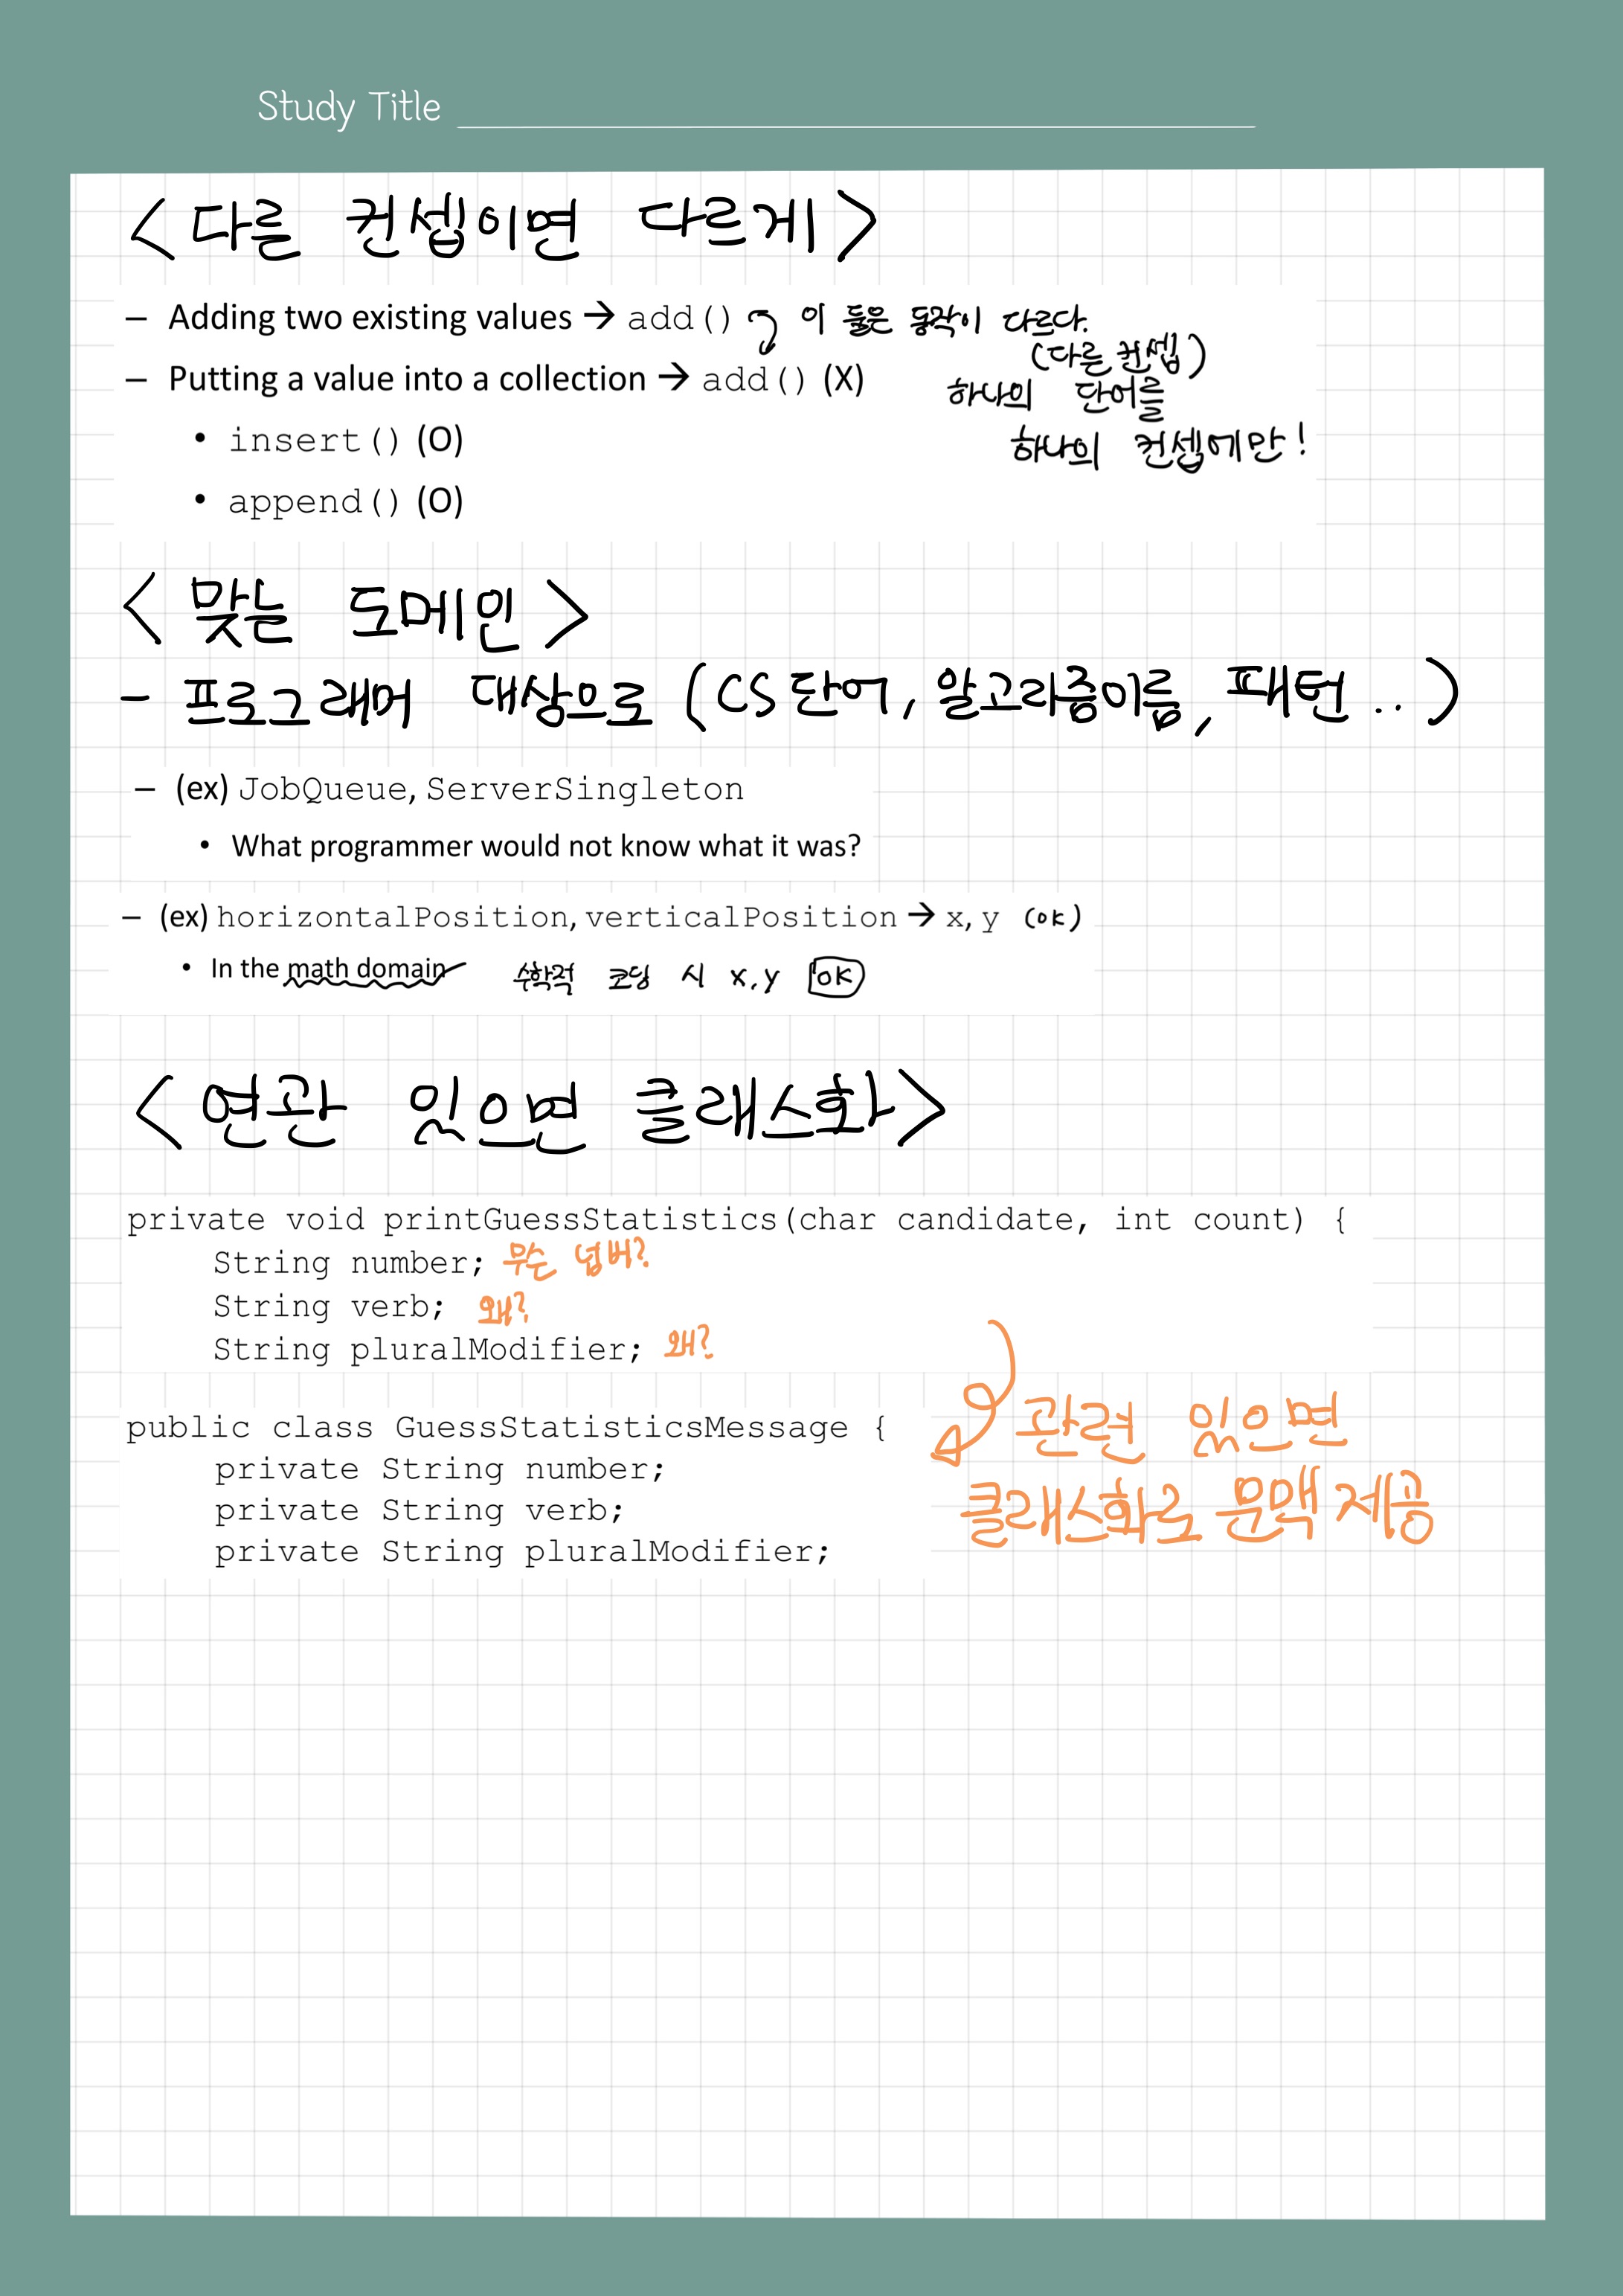 Study Title
<다른 컨셉이면 다르게>
– Adding two existing values → add() 이 둘은 동작이 다르다.
(다른 컨셉)
– Putting a value into a collection → add() (X) 하나의 단어를
하나의 컨셉에만!
• insert() (O)
• append() (O)
<맞는 도메인>
- 프로그래머 대상으로 (CS단어, 알고리즘이름, 패턴..)
– (ex) JobQueue, ServerSingleton
• What programmer would not know what it was?
– (ex) horizontalPosition, verticalPosition → x, y (OK)
• In the math domain 수학적 코딩 시 x,y OK
<연관 있으면 클래스화>
private void printGuessStatistics(char candidate, int count) {
String number; 무슨 넘버?
String verb; 왜?
String pluralModifier; 왜?
public class GuessStatisticsMessage { 관련 있으면
private String number;
private String verb; 클래스화로 문맥 제공
private String pluralModifier;